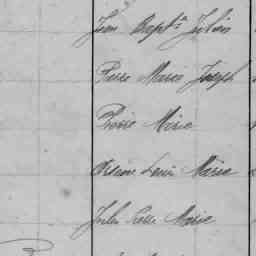 Jean Bapt.te Julien
Pierre Marie Joseph
Pierre Marie
Louis Marie
Jules Pierre Marie